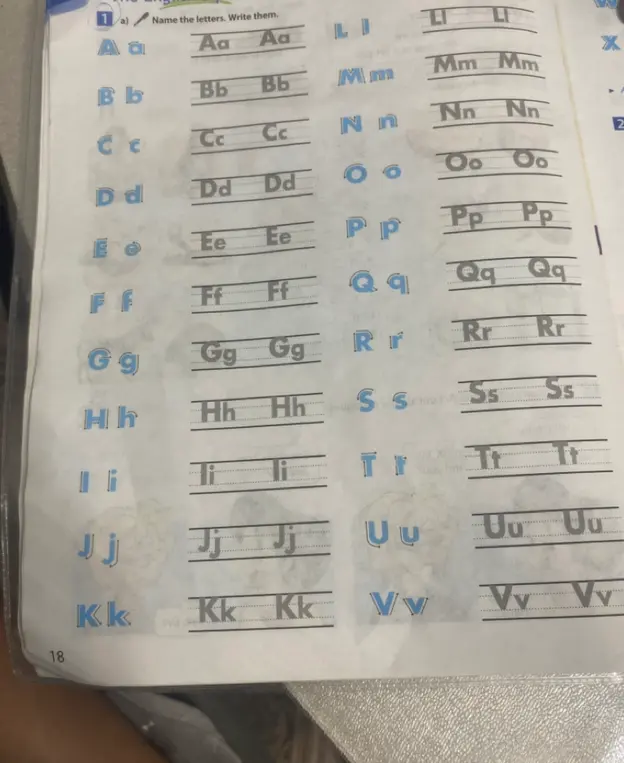 1 a) Name the letters. Write them.
A a Aa Aa
B b Bb Bb
C c Cc Cc
D d Dd Dd
E e Ee Ee
F f Ff Ff
G g Gg Gg
H h Hh Hh
I i Ii Ii
J j Jj Jj
K k Kk Kk
L l Ll Ll
M m Mm Mm
N n Nn Nn
O o Oo Oo
P p Pp Pp
Q q Qq Qq
R r Rr Rr
S s Ss Ss
T t Tt Tt
U u Uu Uu
V v Vv Vv
18
X
2